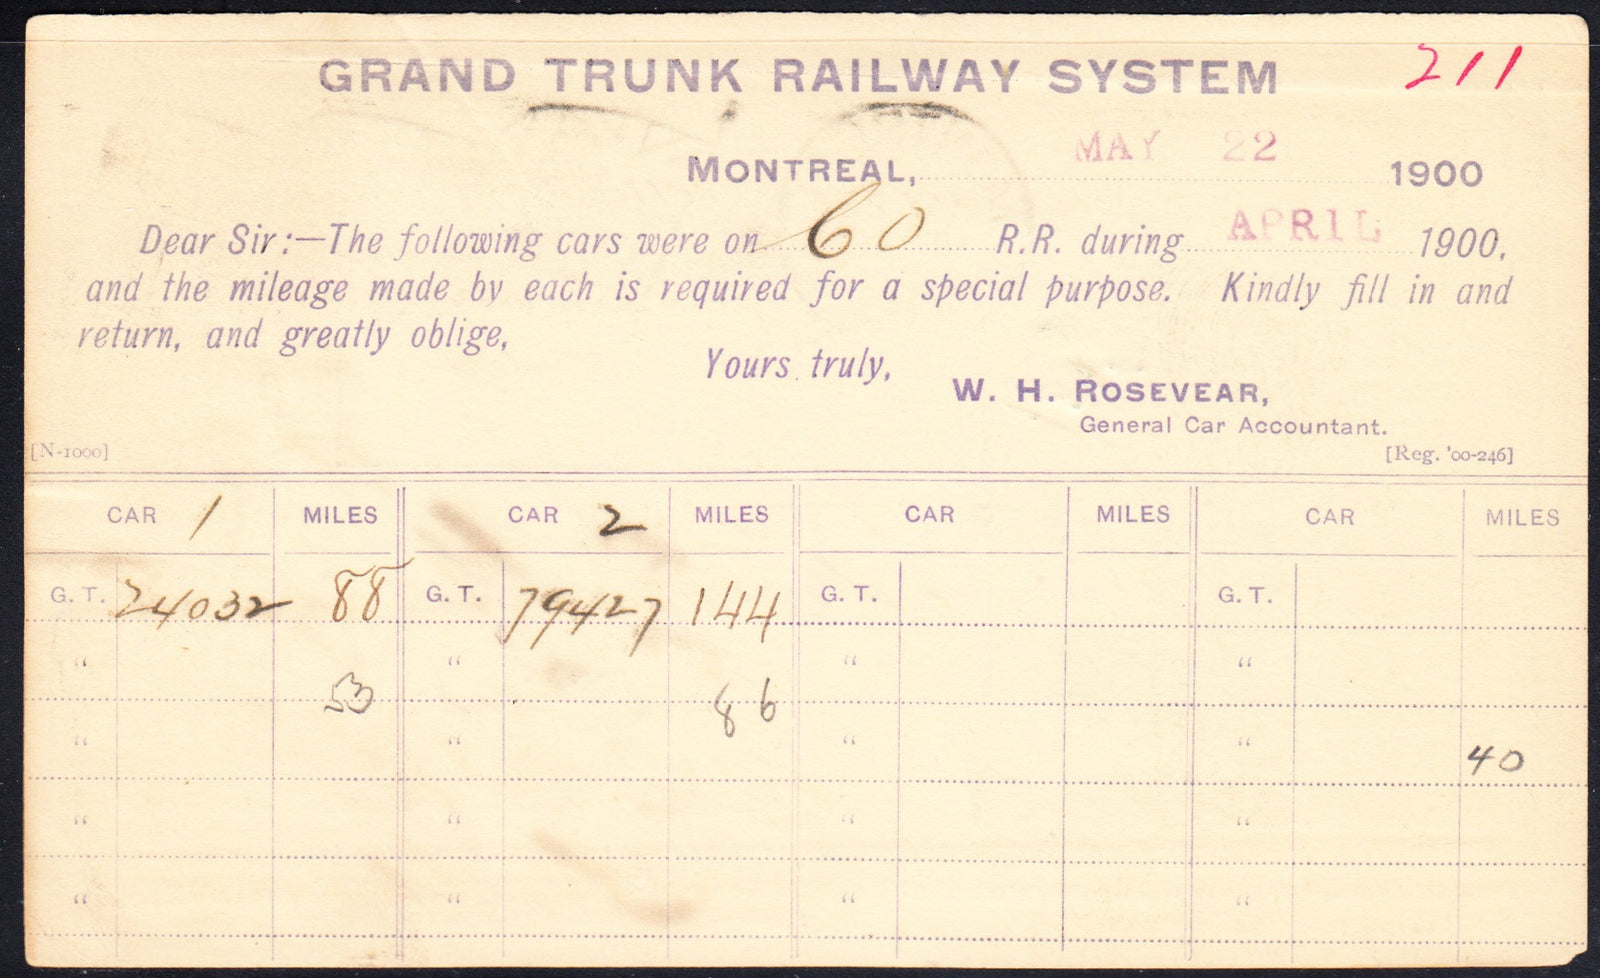 GRAND TRUNK RAILWAY SYSTEM 211
MONTREAL, MAY 22 1900
Dear Sir:—The following cars were on 60 R.R. during APRIL 1900,
and the mileage made by each is required for a special purpose. Kindly fill in and
return, and greatly oblige,
Yours truly,
W. H. ROSEVEAR,
General Car Accountant.
[N-1000] [Reg. '00-246]
CAR 1 MILES CAR 2 MILES CAR MILES CAR MILES
G. T. 24032 88 G. T. 79427 144 G. T. G. T.
" 53 " 86 " "
" " " " 40
" " " "
" " " "